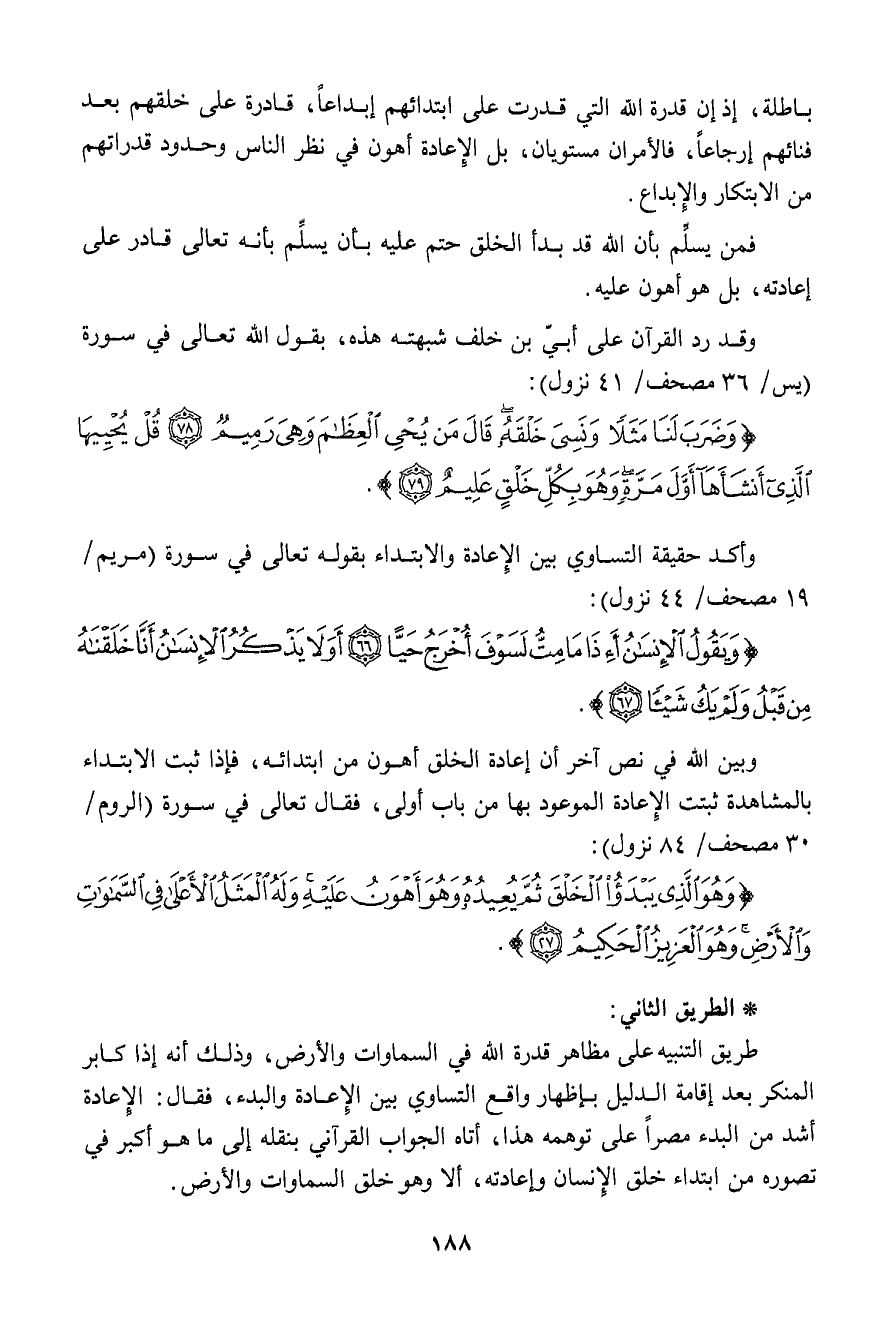 بـاطلة، إذ إن قدرة الله التي قـدرت على ابتدائهم إبـداعاً، قـادرة على خلقهم بعـد
فنائهم إرجاعاً، فالأمران مستويان، بل الإعادة أهون في نظر الناس وحـدود قدراتهم
من الابتكار والإبداع.
فمن يسلِّم بأن الله قد بـدأ الخلق حتم عليه بـأن يسلِّم بأنـه تعالى قـادر على
إعادته، بل هو أهون عليه.
وقـد رد القرآن على أبـيّ بن خلف شبهتـه هذه، بقـول الله تعـالى في سـورة
(يس/ ٣٦ مصحف/ ٤١ نزول):
﴿ وَضَرَبَ لَنَا مَثَلًا وَنَسِىَ خَلْقَهُۥۖ قَالَ مَن يُحْىِ ٱلْعِظَٰمَ وَهِىَ رَمِيمٌ ۝٧٨ قُلْ يُحْيِيهَا
ٱلَّذِىٓ أَنشَأَهَآ أَوَّلَ مَرَّةٍۖ وَهُوَ بِكُلِّ خَلْقٍ عَلِيمٌ ۝٧٩ ﴾.
وأكـد حقيقة التسـاوي بين الإعادة والابتـداء بقولـه تعالى في سـورة (مـريم/
١٩ مصحف/ ٤٤ نزول):
﴿ وَيَقُولُ ٱلْإِنسَٰنُ أَءِذَا مَا مِتُّ لَسَوْفَ أُخْرَجُ حَيًّا ۝٦٦ أَوَلَا يَذْكُرُ ٱلْإِنسَٰنُ أَنَّا خَلَقْنَٰهُ
مِن قَبْلُ وَلَمْ يَكُ شَيْـًٔا ۝٦٧ ﴾.
وبين الله في نص آخر أن إعادة الخلق أهـون من ابتدائـه، فإذا ثبت الابتـداء
بالمشاهدة ثبتت الإعادة الموعود بها من باب أولى، فقـال تعالى في سـورة (الروم/
٣٠ مصحف/ ٨٤ نزول):
﴿ وَهُوَ ٱلَّذِى يَبْدَؤُا۟ ٱلْخَلْقَ ثُمَّ يُعِيدُهُۥ وَهُوَ أَهْوَنُ عَلَيْهِۚ وَلَهُ ٱلْمَثَلُ ٱلْأَعْلَىٰ فِى ٱلسَّمَٰوَٰتِ
وَٱلْأَرْضِۚ وَهُوَ ٱلْعَزِيزُ ٱلْحَكِيمُ ۝٢٧ ﴾.
* الطريق الثاني:
طريق التنبيه على مظاهر قدرة الله في السماوات والأرض، وذلـك أنه إذا كـابر
المنكر بعد إقامة الـدليل بـإظهار واقـع التساوي بين الإعـادة والبدء، فقـال: الإعادة
أشد من البدء مصراً على توهمه هذا، أتاه الجواب القرآني بنقله إلى ما هـو أكبر في
تصوره من ابتداء خلق الإنسان وإعادته، ألا وهو خلق السماوات والأرض.
١٨٨